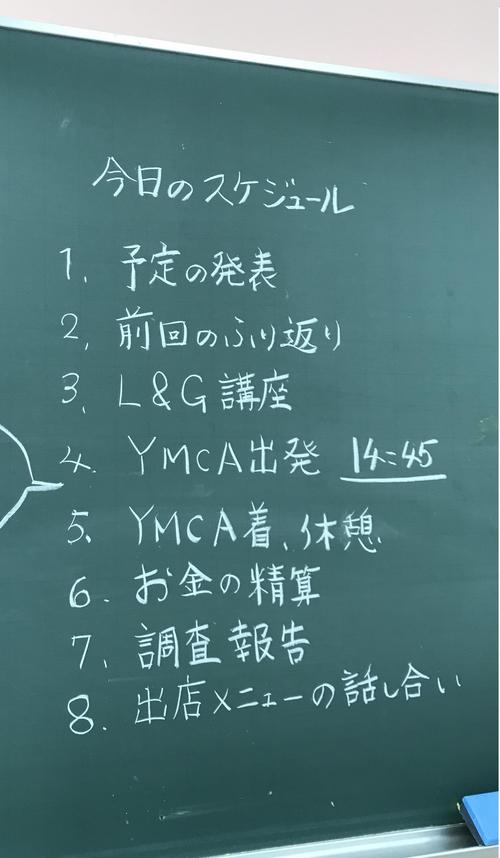 今日のスケジュール
1. 予定の発表
2. 前回のふり返り
3. L&G講座
4. YMCA出発 14:45
5. YMCA着、休憩
6. お金の精算
7. 調査報告
8. 出店メニューの話し合い